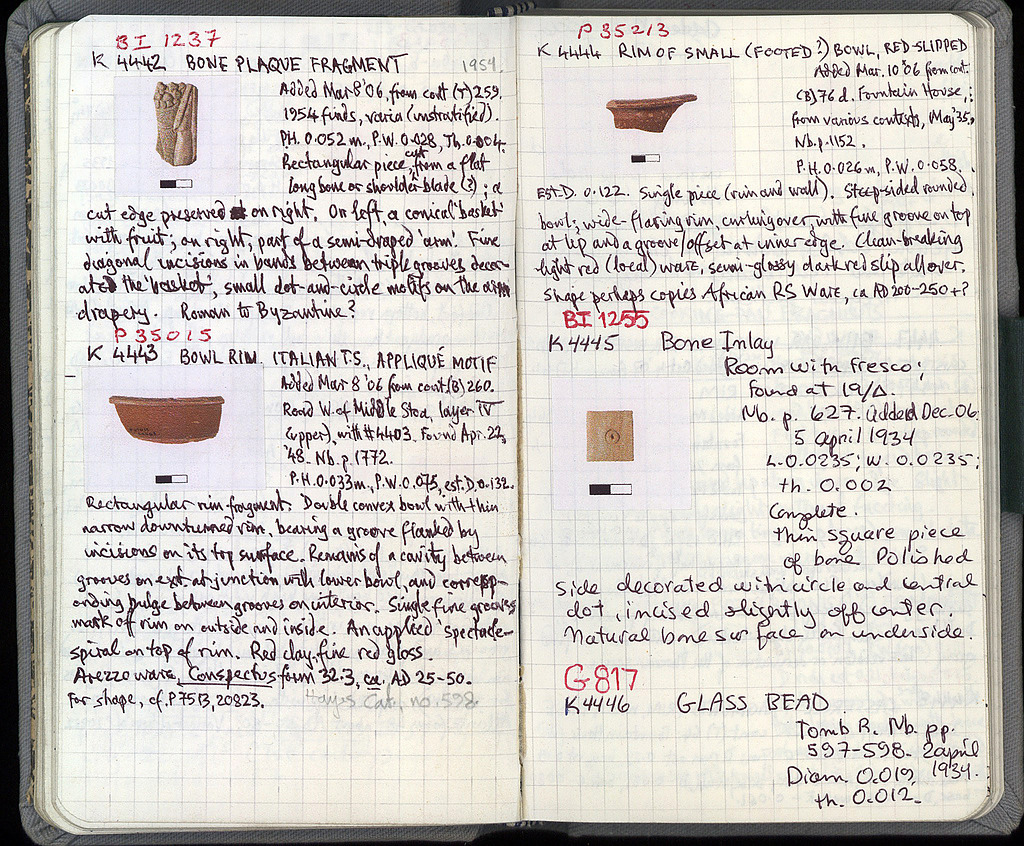 BI 1237
K 4442 BONE PLAQUE FRAGMENT 1954.
Added Mar 8 '06, from cont (T) 259.
1954 finds, varia (unstratified).
P.H. 0.052 m, P.W. 0.028, Th. 0.004.
Rectangular piece, cut from a flat
long bone or shoulder-blade (?); a
cut edge preserved on right. On left, a conical 'basket'
with fruit; on right, part of a semi-draped 'arm'. Fine
diagonal incisions in bands between triple grooves decor-
ated the 'basket', small dot-and-circle motifs on the arm
drapery. Roman to Byzantine?
P 35015
K 4443 BOWL RIM. ITALIAN T.S., APPLIQUÉ MOTIF
Added Mar 8 '06 from cont (B) 260.
Road W. of Middle Stoa, layer IV
(upper), with #4403. Found Apr. 22,
'48. Nb. p. 1772.
P.H. 0.033 m, P.W. 0.075, est. D. 0.132.
Rectangular rim fragment. Double convex bowl with thin
narrow downturned rim, bearing a groove flanked by
incisions on its top surface. Remains of a cavity between
grooves on ext. at junction with lower bowl, and corresp-
onding bulge between grooves on interior. Single fine grooves
mark off rim on outside and inside. An applied 'spectacle-
spiral on top of rim. Red clay, fine red gloss.
Arezzo ware, Conspectus form 32.3, ca. AD 25-50.
For shape, cf. P 7513, 20823. Hayes Cat. no. 598
P 35213
K 4444 RIM OF SMALL (FOOTED?) BOWL, RED-SLIPPED
Added Mar. 10 '06 from cont.
(B) 76 d. Fountain House,
from various contexts, May '35.
Nb. p. 1152.
P.H. 0.026 m, P.W. 0.058.
EST. D. 0.122. Single piece (rim and wall). Steep-sided rounded
bowl; wide-flaring rim, curling over, with fine groove on top
at lip and a groove/offset at inner edge. Clean-breaking
light red (local) ware, semi-glossy dark red slip all over.
Shape perhaps copies African RS Ware, ca AD 200-250+?
BI 1255
K 4445 Bone Inlay
Room with fresco;
Found at 19/Δ.
Nb. p. 627. Added Dec. 06
5 april 1934
L. 0.0235; W. 0.0235;
th. 0.002
Complete.
thin square piece
of bone Polished
side decorated with circle and central
dot, incised slightly off center.
Natural bone surface on underside.
G 817
K 4446 GLASS BEAD
Tomb R. Nb. pp.
597-598. 2 april
1934.
Diam. 0.019
th. 0.012.